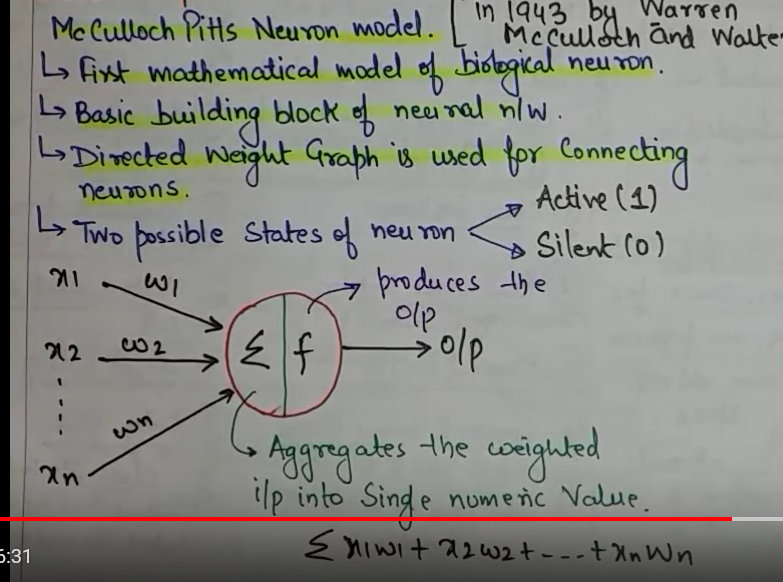 McCulloch Pitts Neuron model. [ in 1943 by Warren
McCulloch and Walte
↳ First mathematical model of biological neuron.
↳ Basic building block of neural n/w.
↳ Directed Weight Graph is used for Connecting
neurons.
↳ Two possible States of neuron
Active (1)
Silent (0)
x1 w1
x2 w2
xn wn
Σ f
produces the
O/P
O/P
Aggregates the weighted
i/p into Single numeric Value.
Σ x1w1 + x2w2 + ---- + xnwn
6:31